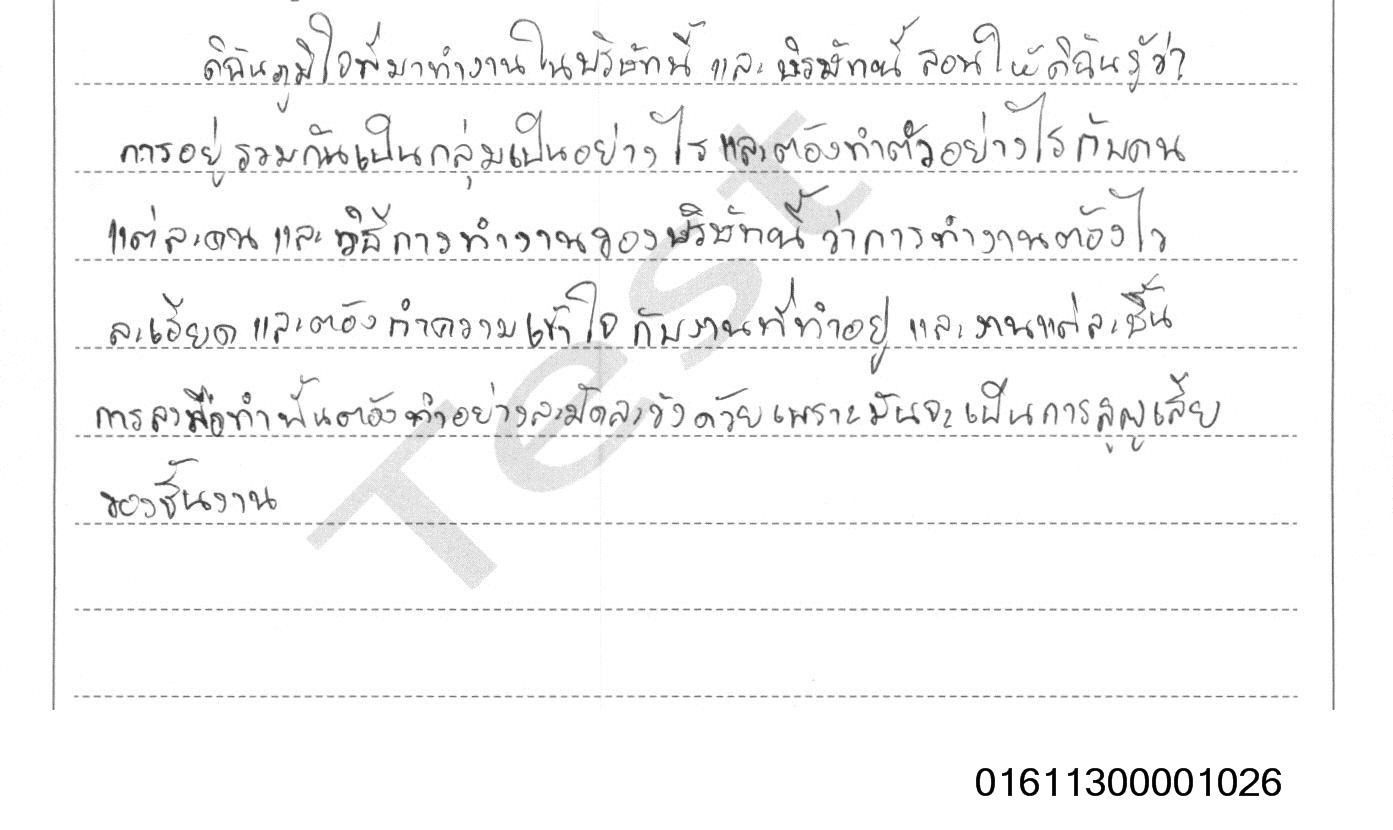 ดิฉันภูมิใจที่มาทำงานในบริษัทนี้ และ บริษัทนี้ สอนให้ดิฉันรู้ว่า
การอยู่รวมกันเป็นกลุ่มเป็นอย่างไร และต้องทำตัวอย่างไรกับคน
แต่ละคน และ วิธีการทำงานของบริษัทนี้ ว่าการทำงานต้องไว
ละเอียด และต้อง ทำความเข้าใจ กับงานที่ทำอยู่ และ งานแต่ละชิ้น
การลงมือทำนั้นต้องทำอย่างละมัดละวังด้วยเพราะมันจะเป็นการสูญเสีย
ของชิ้นงาน
Test
01611300001026